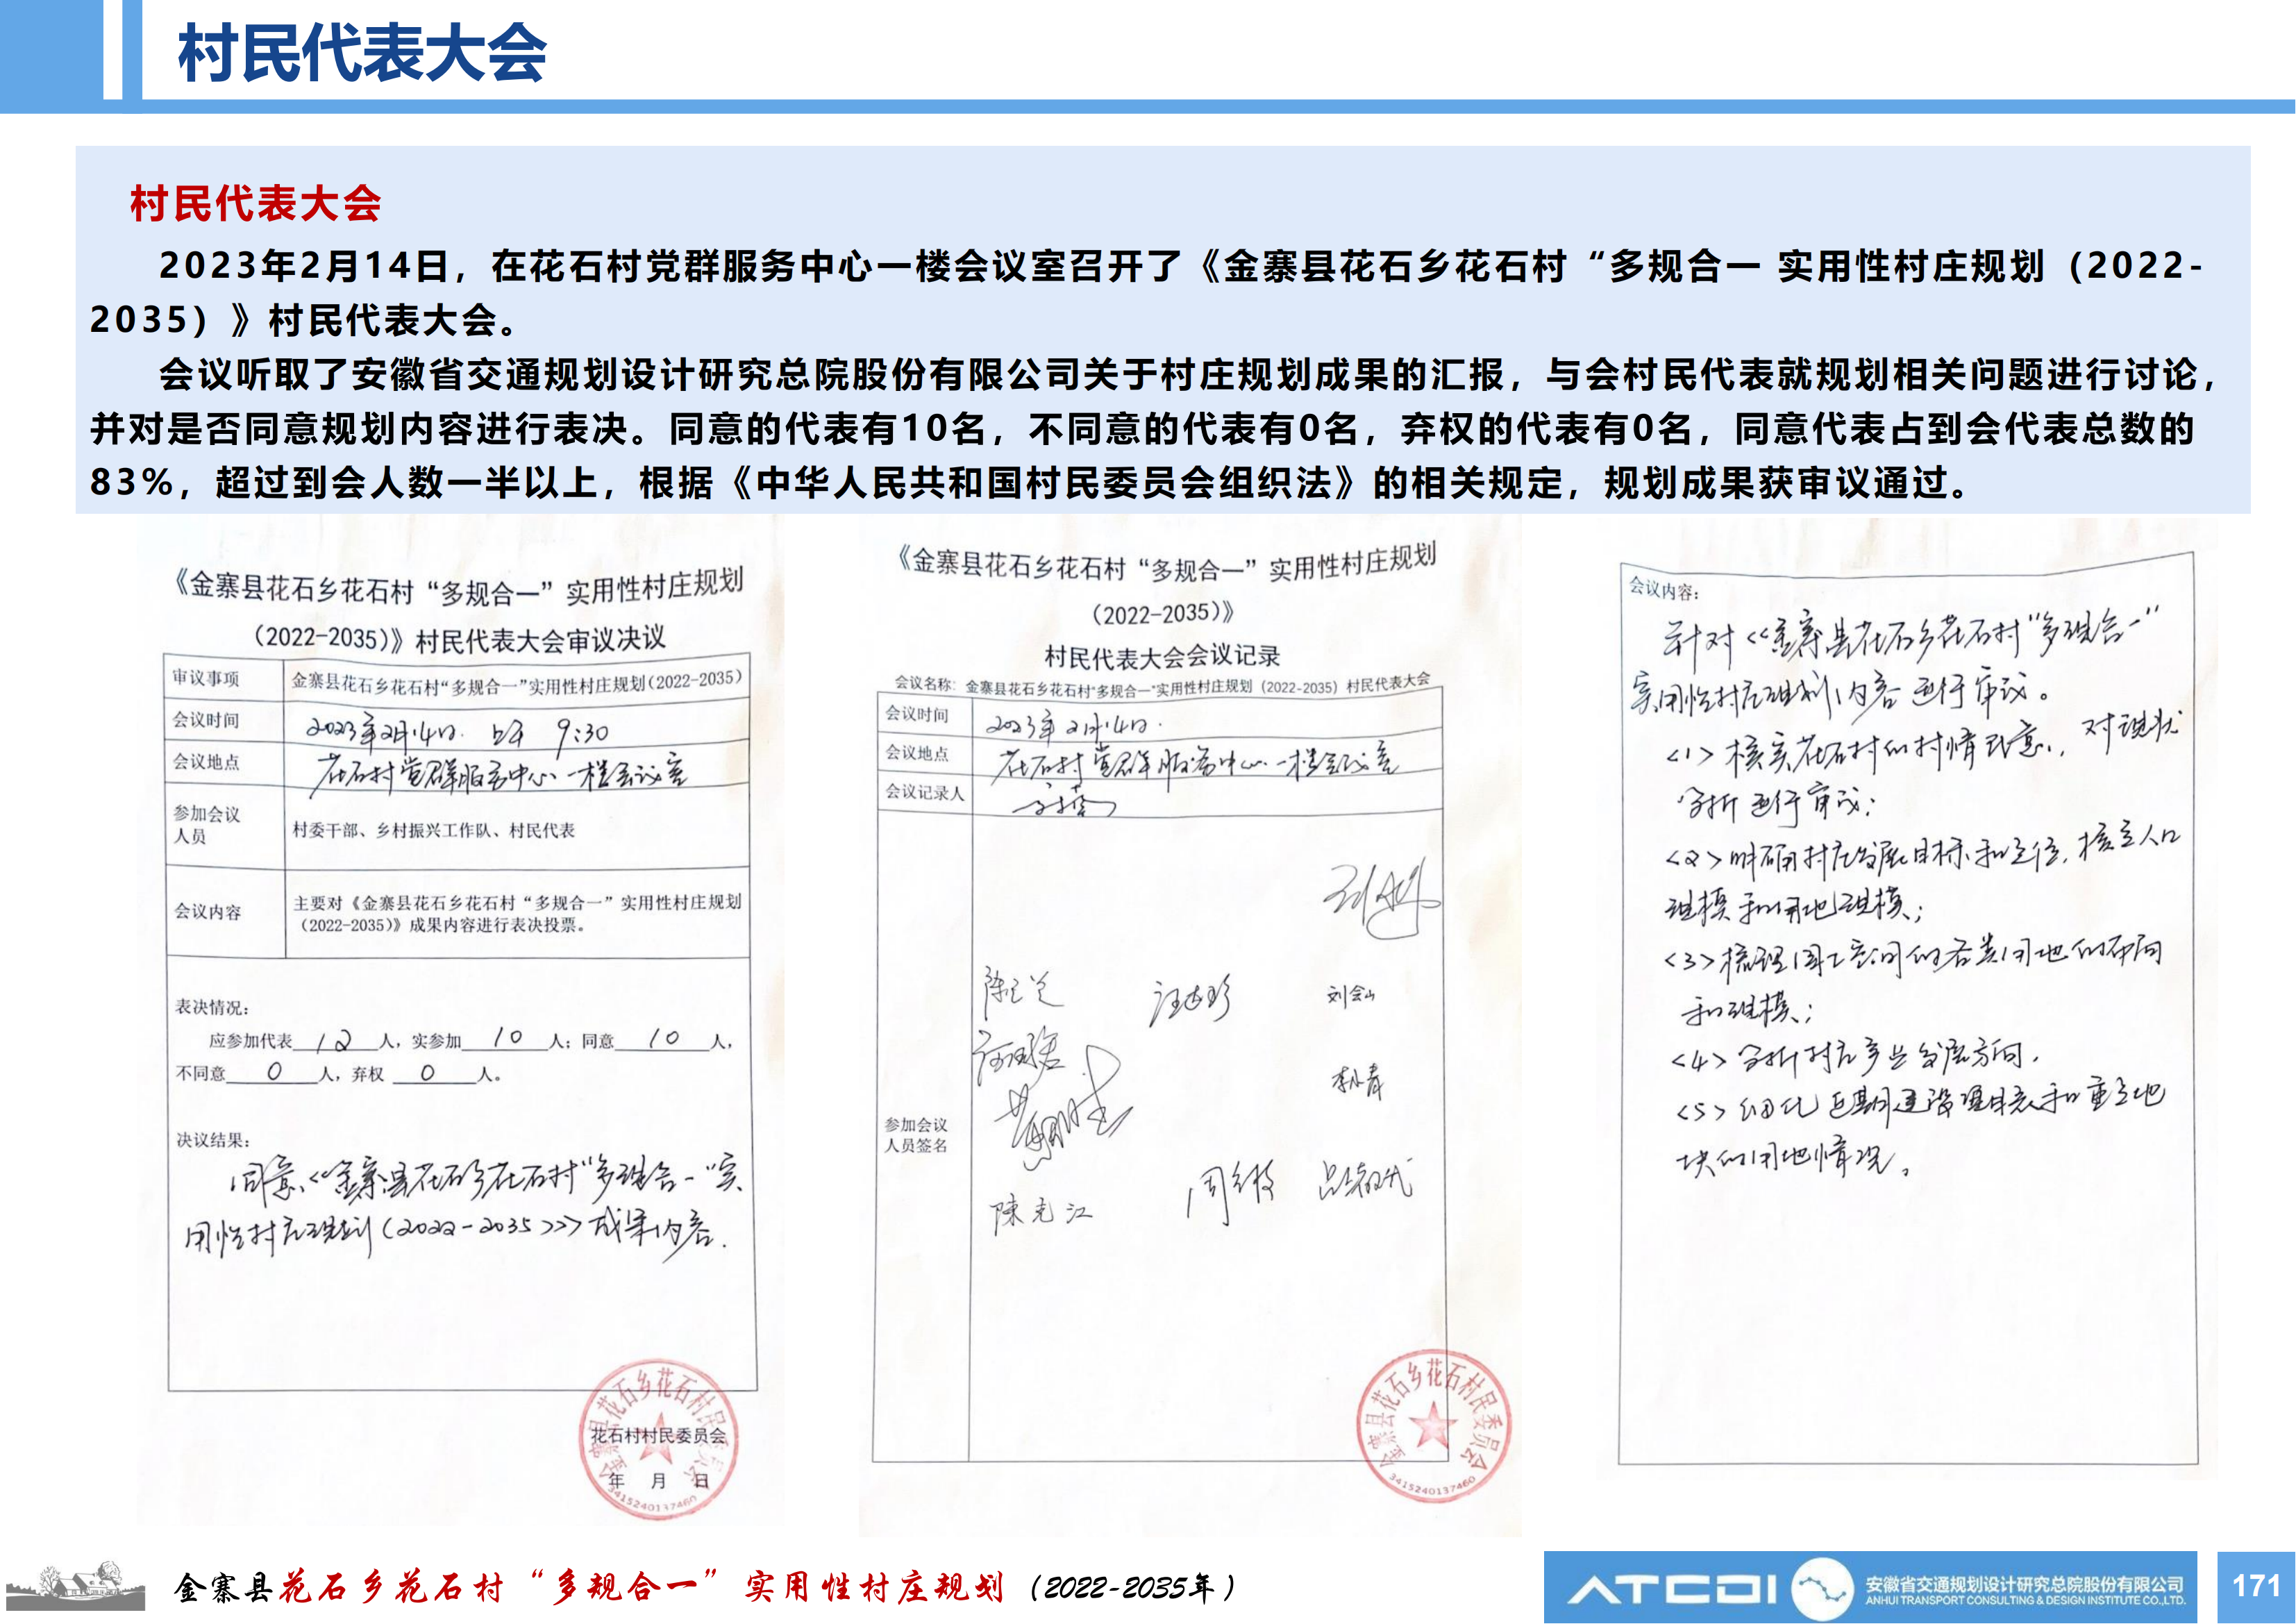 村民代表大会
村民代表大会
2023年2月14日，在花石村党群服务中心一楼会议室召开了《金寨县花石乡花石村“多规合一 实用性村庄规划（2022-
2035）》村民代表大会。
会议听取了安徽省交通规划设计研究总院股份有限公司关于村庄规划成果的汇报，与会村民代表就规划相关问题进行讨论，
并对是否同意规划内容进行表决。同意的代表有10名，不同意的代表有0名，弃权的代表有0名，同意代表占到会代表总数的
83%，超过到会人数一半以上，根据《中华人民共和国村民委员会组织法》的相关规定，规划成果获审议通过。
《金寨县花石乡花石村“多规合一”实用性村庄规划
（2022-2035）》村民代表大会审议决议
审议事项 金寨县花石乡花石村“多规合一”实用性村庄规划（2022-2035）
会议时间 2023年2月14日 上午 9:30
会议地点 花石村党群服务中心一楼会议室
参加会议
人员
村委干部、乡村振兴工作队、村民代表
会议内容
主要对《金寨县花石乡花石村“多规合一”实用性村庄规划
（2022-2035）》成果内容进行表决投票。
表决情况：
应参加代表 12 人，实参加 10 人；同意 10 人，
不同意 0 人，弃权 0 人。
决议结果：
同意《金寨县花石乡花石村“多规合一”实
用性村庄规划（2022-2035）》成果内容.
花石村村民委员会
年 月 日
金寨县花石乡花石村村民委员会
3415240137460
《金寨县花石乡花石村“多规合一”实用性村庄规划
（2022-2035）》
村民代表大会会议记录
会议名称：金寨县花石乡花石村“多规合一”实用性村庄规划（2022-2035）村民代表大会
会议时间 2023年2月14日.
会议地点 花石村党群服务中心一楼会议室
会议记录人
参加会议
人员签名
刘会山
陳克江
金寨县花石乡花石村村民委员会
3415240137460
会议内容：
针对《金寨县花石乡花石村“多规合一”
实用性村庄规划》内容进行审议。
<1>核实花石村的村情民意，对现状
分析进行审议；
<2>明确村庄发展目标和定位，核定人口
规模和用地规模；
<3>梳理国土空间的各类用地的布局
和规模；
<4>分析村庄产业发展方向.
<5>细化近期建设项目表和重点地
块的用地情况。
金寨县花石乡花石村“多规合一”实用性村庄规划（2022-2035年）
ATCDI
安徽省交通规划设计研究总院股份有限公司
ANHUI TRANSPORT CONSULTING & DESIGN INSTITUTE CO.,LTD.
171